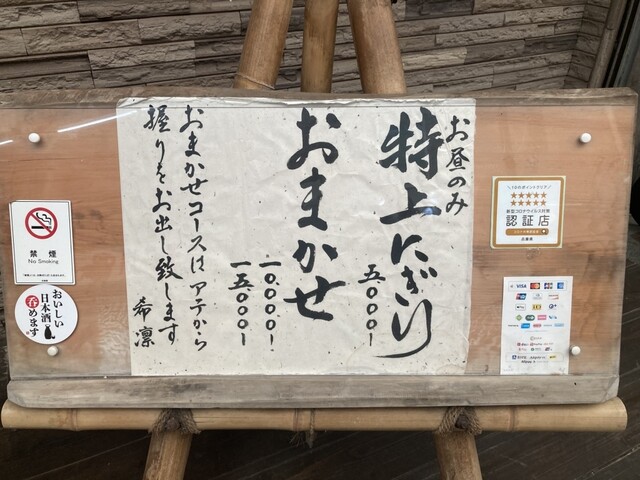 お昼のみ
特上にぎり
五〇〇〇ー
おまかせ
一〇.〇〇〇ー
一五〇〇〇ー
おまかせコースはアテから
握りをお出し致します
希凛
禁煙
No Smoking
おいしい
日本酒
呑めます
新型コロナウイルス対策
認証店
兵庫県
VISA